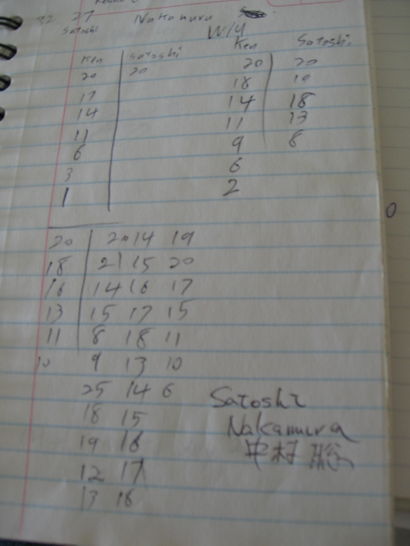 27 Nakamura
Satoshi W14
Ken Satoshi Ken Satoshi
20 20 20 20
17 18 19
14 14 18
11 11 13
6 9 8
3 6
1 2
20 20 14 19
18 21 15 20
16 14 16 17
13 15 17 15
11 8 18 11
10 9 13 10
25 14 6
18 15
19 16
12 17
13 16
Satoshi
Nakamura
中村